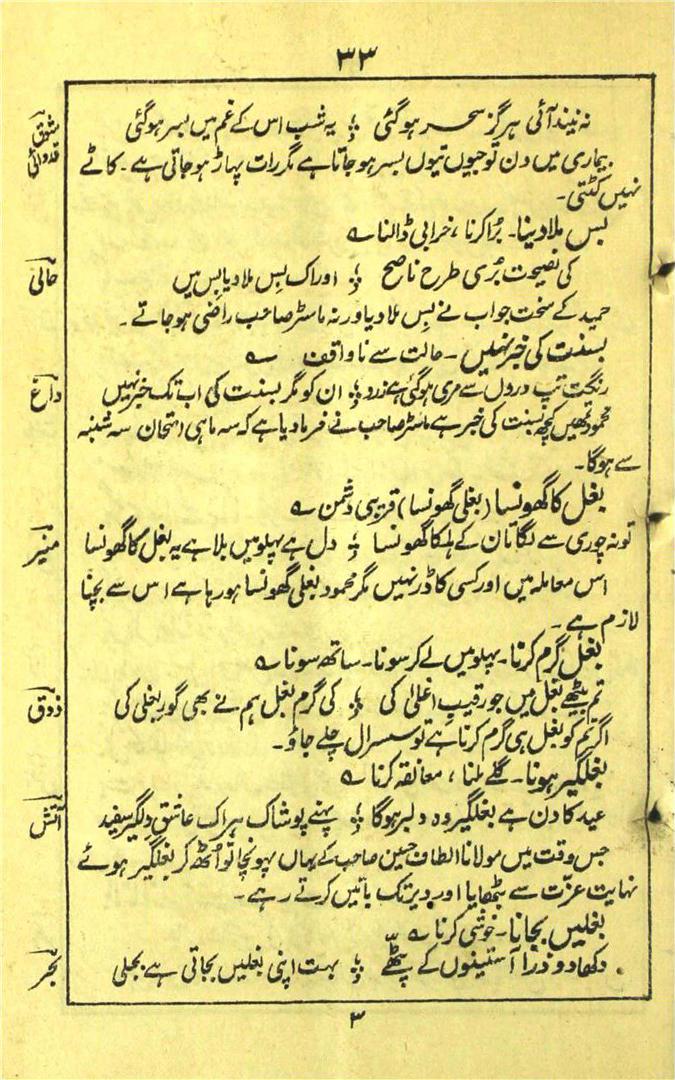 ۳۳
شوق قدوائی
نہ نیند آئی ہرگز سحر ہو گئی ؛ یہ شب اس کے غم میں بسر ہو گئی
بیماری میں دن تو جیوں تیوں بسر ہو جاتا ہے مگر رات پہاڑ ہو جاتی ہے۔ کاٹے
نہیں کٹتی۔
بس ملا دینا۔ بُرا کرنا، خرابی ڈالنا ؎
حالی
کی نصیحت بُری طرح ناصح ؛ اور اک بِس ملا دیا بِس میں
حمید کے سخت جواب نے بِس ملا دیا ورنہ ماسٹر صاحب راضی ہو جاتے۔
بسنت کی خبر نہیں۔ حالت سے ناواقف ؎
داغ
رنگت تپِ دروں سے مری ہو گئی ہے زرد ؛ ان کو مگر بسنت کی اب تک خبر نہیں
محمود تمھیں کچھ بسنت کی خبر ہے ماسٹر صاحب نے فرما دیا ہے کہ سہ ماہی امتحان سہ شنبہ
سے ہوگا۔
بغل کا گھونسا (بغلی گھونسا) قریبی دشمن ؎
منیر
تو نہ چوری سے لگا تان کے ہلکا گھونسا ؛ دل ہے پہلو میں بلا ہے یہ بغل کا گھونسا
اس معاملہ میں اور کسی کا ڈر نہیں مگر محمود بغلی گھونسا ہو رہا ہے اس سے بچنا
لازم ہے۔
بغل گرم کرنا۔ پہلو میں لے کر سونا۔ ساتھ سونا ؎
ذوق
تم بیٹھے بغل میں جو رقیبِ اغلیٰ کی ؛ کی گرم بغل ہم نے بھی گورِ بغلی کی
اگر تم کو بغل ہی گرم کرنا ہے تو سسرال چلے جاؤ۔
بغلگیر ہونا۔ گلے ملنا، معانقہ کرنا ؎
آتش
عید کا دن ہے بغلگیر وہ دلبر ہوگا ؛ پہنے پوشاک ہر اک عاشقِ دلگیر سفید
جس وقت میں مولانا الطاف حسین صاحب کے یہاں پہونچا تو اُٹھ کر بغلگیر ہوئے
نہایت عزّت سے بٹھایا اور دیر تک باتیں کرتے رہے۔
بغلیں بجانا۔ خوشی کرنا ؎
بحر
دکھا دو ذرا آستینوں کے پٹھّے ؛ بہت اپنی بغلیں بجاتی ہے بجلی
۳